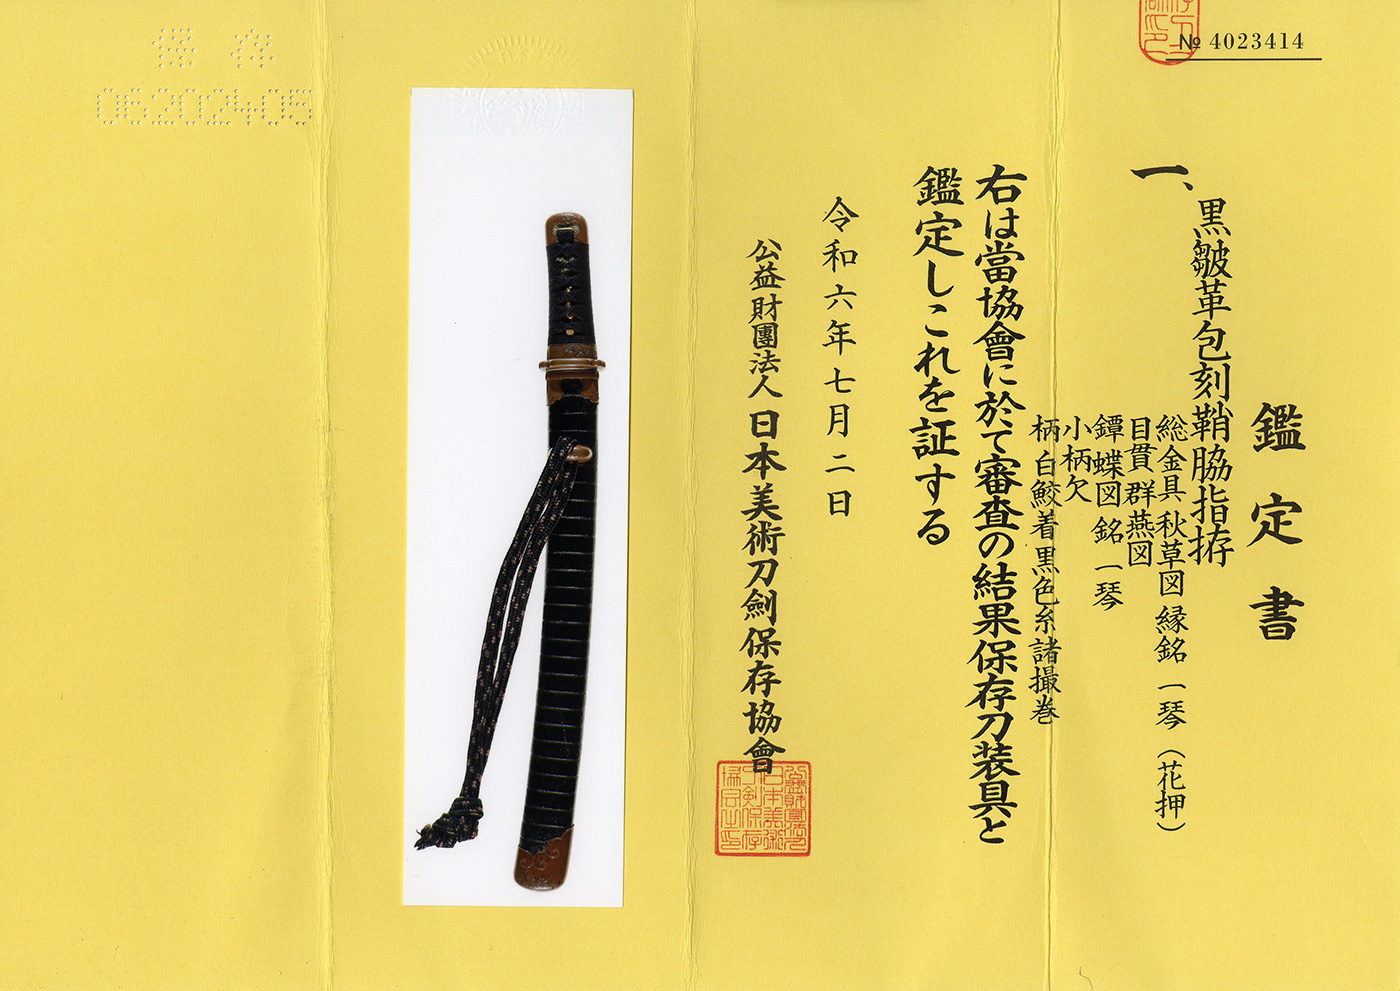 № 4023414
鑑定書
一、黒皺革包刻鞘脇指拵
総金具 秋草図 縁銘 一琴（花押）
目貫 群燕図
鐔 蝶図 銘 一琴
小柄欠
柄 白鮫着黒色糸諸撮巻
右は當協會に於て審査の結果保存刀装具と
鑑定しこれを証する
令和六年七月二日
公益財團法人 日本美術刀劍保存協會
保存
06202405